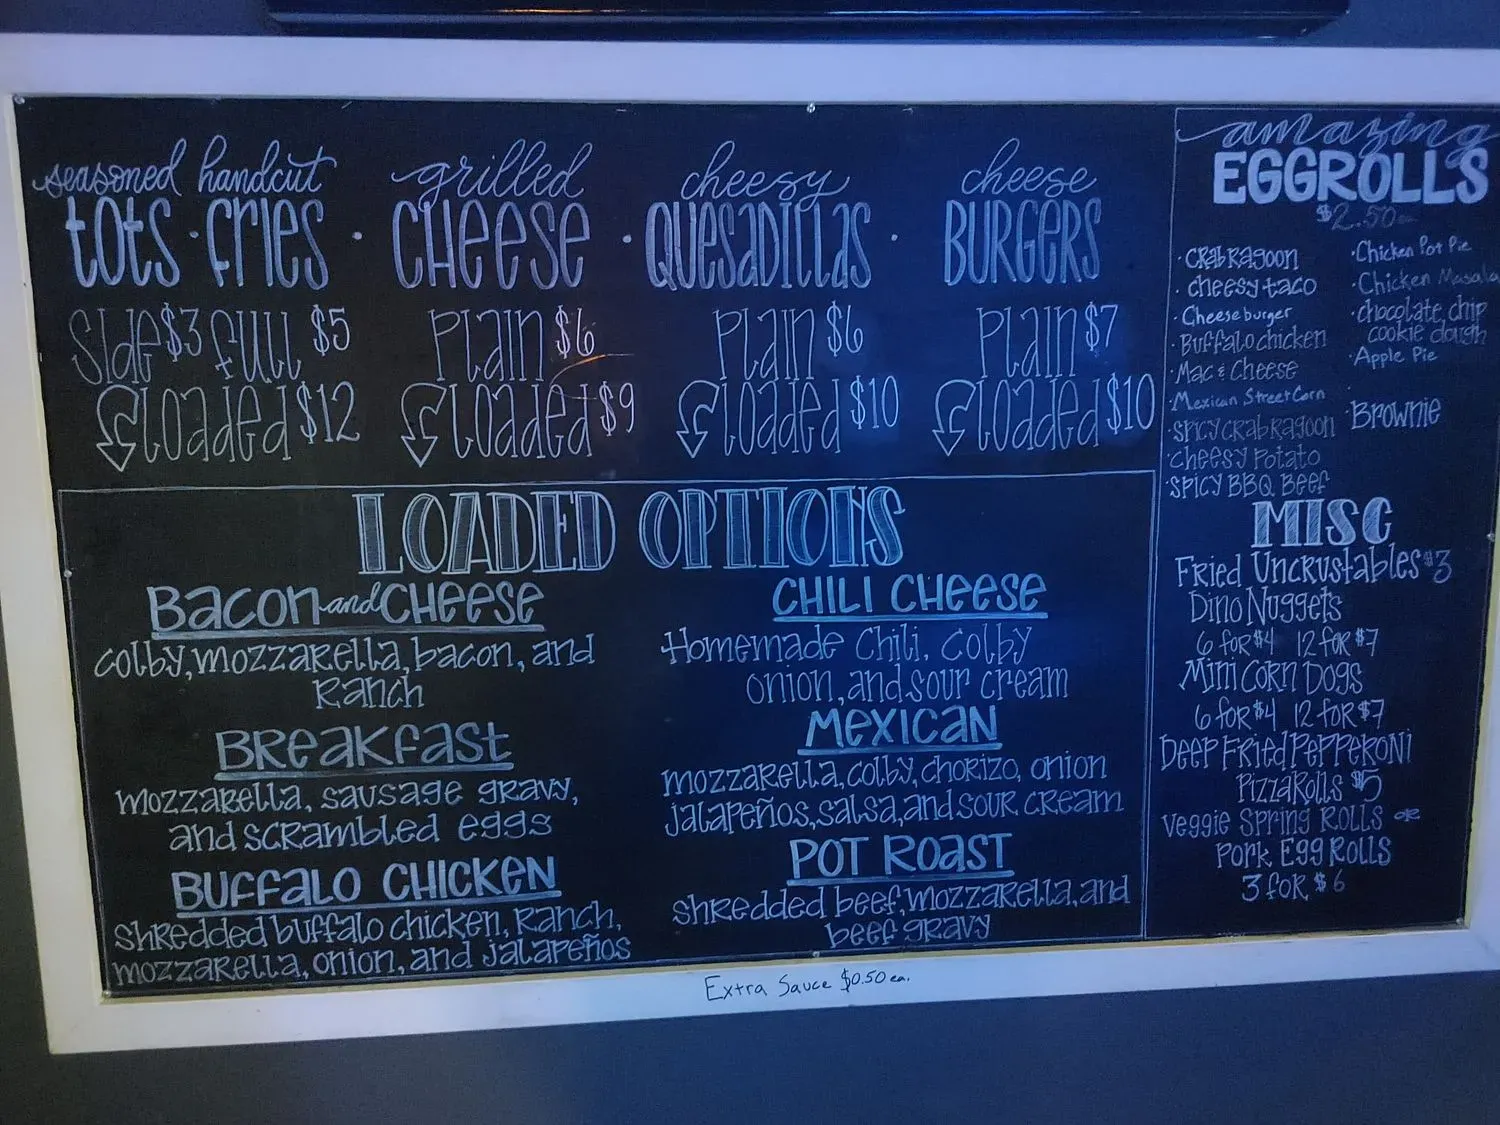 seasoned handcut
tots · fries
Side $3 full $5
loaded $12
grilled
CHEESE
Plain $6
loaded $9
cheesy
QUESADILLAS
Plain $6
loaded $10
cheese
BURGERS
Plain $7
loaded $10
LOADED OPTIONS
Bacon and CHEESE
colby, mozzarella, bacon, and
Ranch
BREAKfast
mozzarella, sausage gravy,
and scrambled eggs
BUFFALO CHICKEN
shredded buffalo chicken, Ranch,
mozzarella, onion, and jalapeños
CHILI CHEESE
Homemade Chili, Colby
onion, and sour cream
MEXICAN
mozzarella, colby, chorizo, onion
jalapeños, salsa, and sour cream
POT ROAST
shredded beef, mozzarella, and
beef gravy
amazing
EGGROLLS
$2.50 ea
· Crab Ragoon
· cheesy taco
· Cheeseburger
· Buffalo chicken
· Mac & Cheese
· Mexican Street Corn
· Spicy Crab Ragoon
· Cheesy Potato
· Spicy BBQ Beef
· Chicken Pot Pie
· Chicken Masala
· chocolate chip
cookie dough
· Apple Pie
· Brownie
MISC
Fried Uncrustables $3
Dino Nuggets
6 for $4 12 for $7
Mini Corn Dogs
6 for $4 12 for $7
Deep Fried Pepperoni
Pizza Rolls $5
Veggie Spring Rolls or
Pork Egg Rolls
3 for $6
Extra Sauce $0.50 ea.